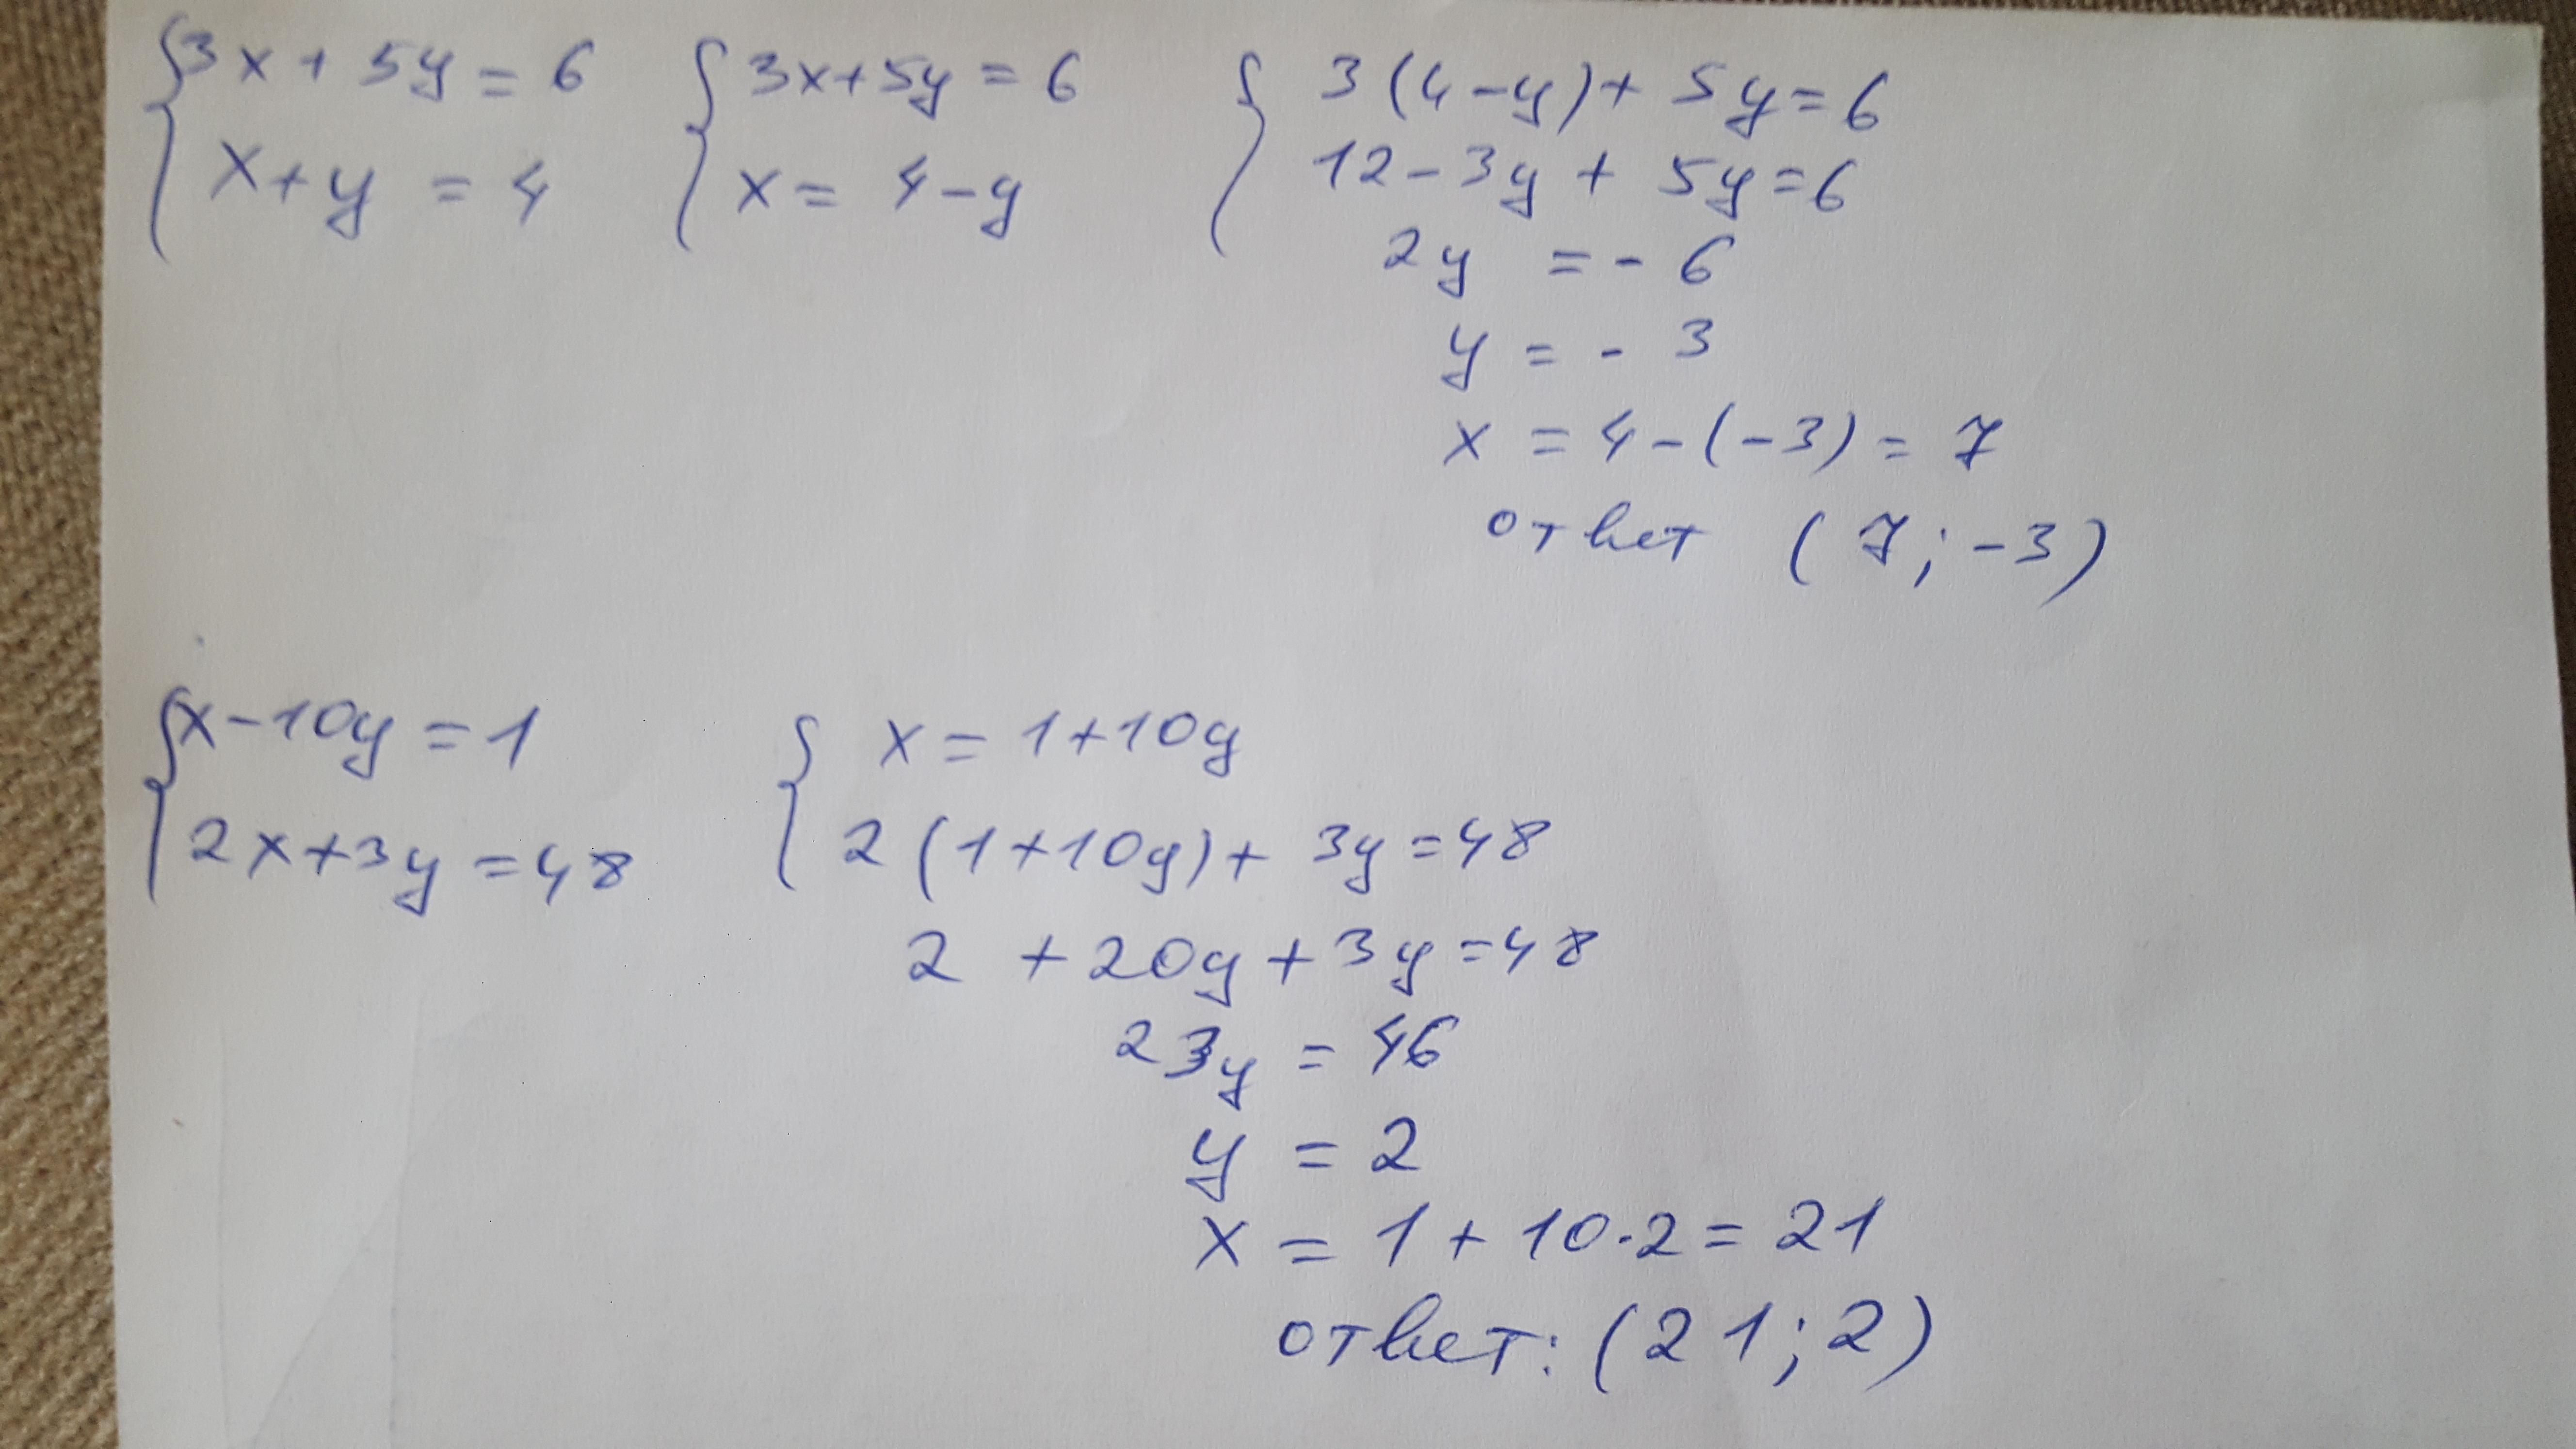 3x + 5y = 6
x + y = 4
3x + 5y = 6
x = 4 - y
3(4 - y) + 5y = 6
12 - 3y + 5y = 6
2y = - 6
y = - 3
x = 4 - (-3) = 7
ответ (7; -3)
x - 10y = 1
2x + 3y = 48
x = 1 + 10y
2(1 + 10y) + 3y = 48
2 + 20y + 3y = 48
23y = 46
y = 2
x = 1 + 10·2 = 21
ответ: (21; 2)